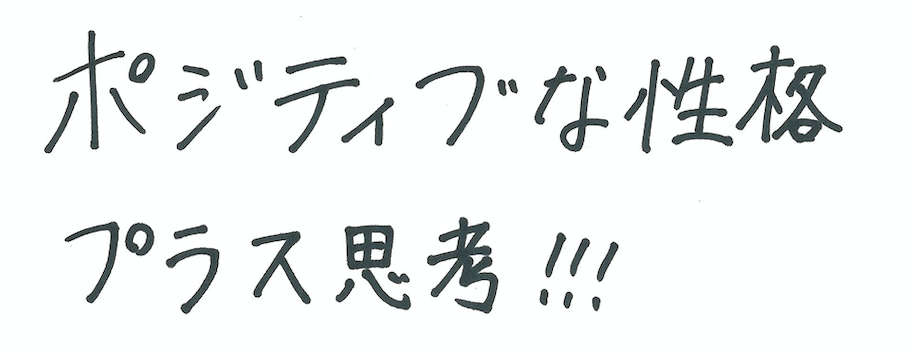 ポジティブな性格
プラス思考!!!